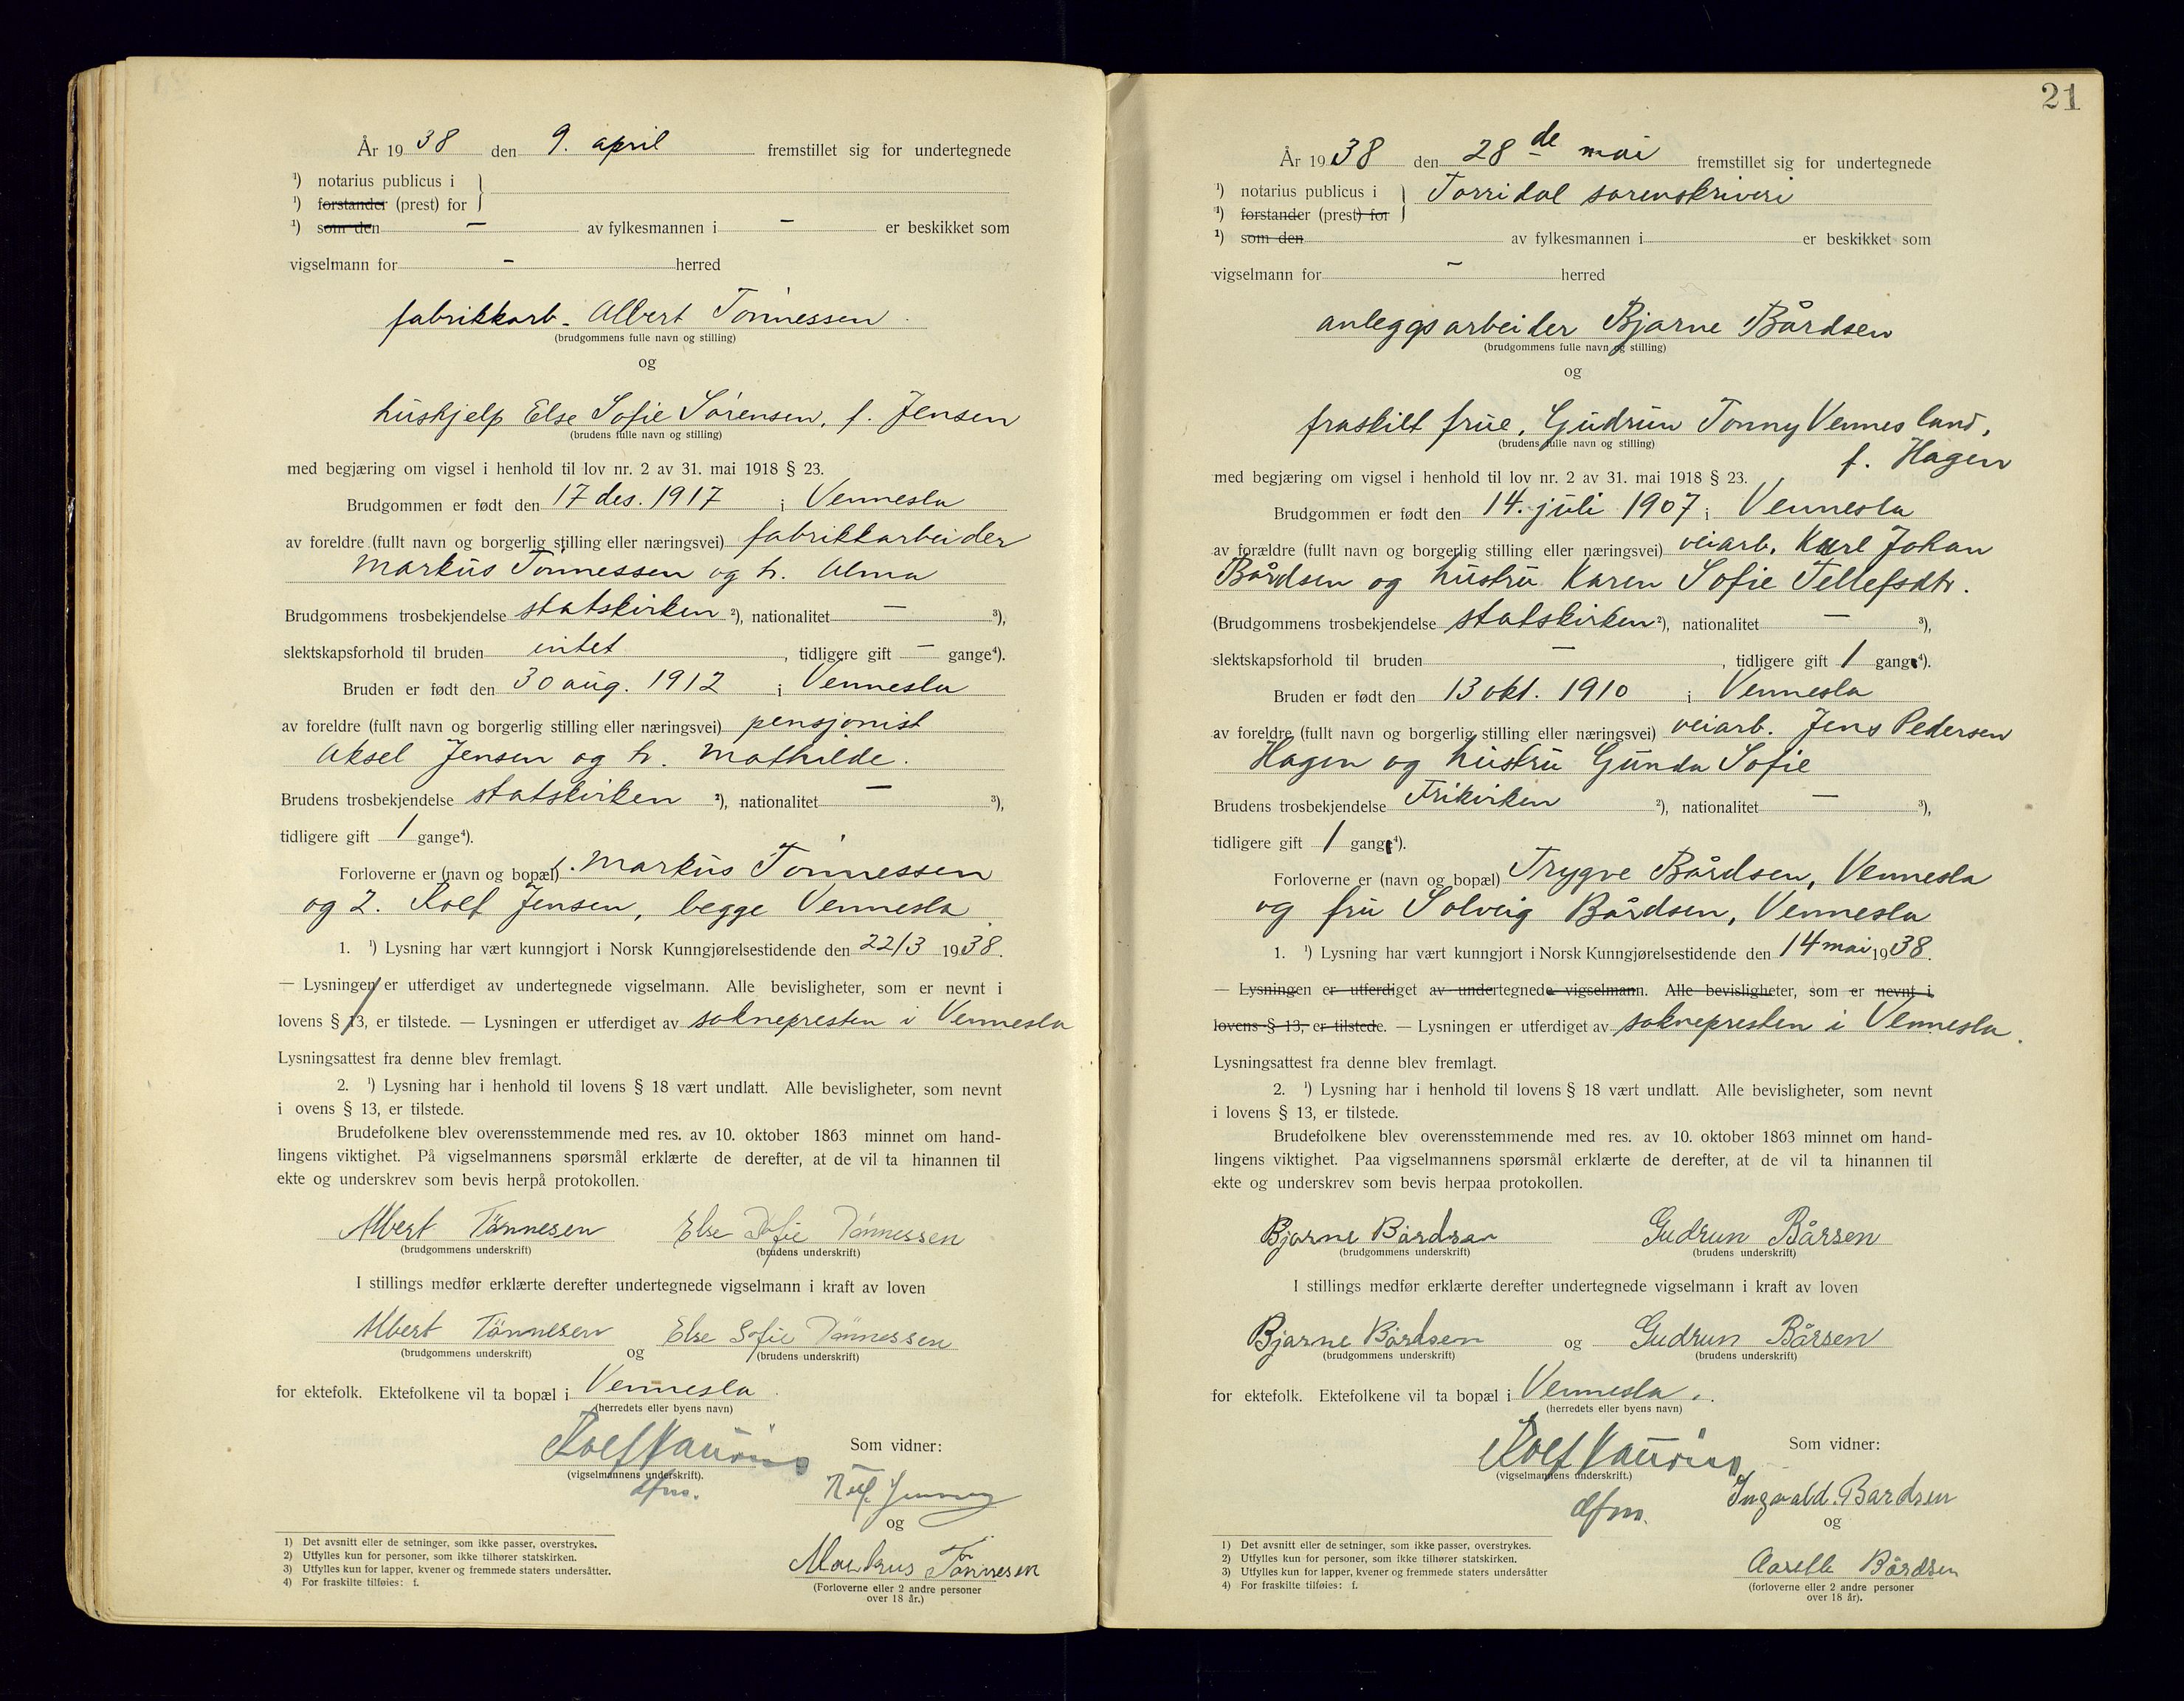 År 1938 den 9. april fremstillet sig for undertegnede
¹) notarius publicus i
¹) forstander (prest) for
¹) som den – av fylkesmannen i – er beskikket som
vigselmann for – herred
fabrikkarb. Albert Tönnessen
(brudgommens fulle navn og stilling)
og
hushjelp Else Sofie Sörensen, f. Jensen
(brudens fulle navn og stilling)
med begjæring om vigsel i henhold til lov nr. 2 av 31. mai 1918 § 23.
Brudgommen er født den 17 des. 1917 i Vennesla
av foreldre (fullt navn og borgerlig stilling eller næringsvei) fabrikkarbeider
Markus Tönnessen og h. Alma
Brudgommens trosbekjendelse statskirken ²), nationalitet – ³),
slektskapsforhold til bruden intet, tidligere gift – gange⁴).
Bruden er født den 30 aug. 1912 i Vennesla
av foreldre (fullt navn og borgerlig stilling eller næringsvei) pensjonist
Aksel Jensen og h. Mathilde.
Brudens trosbekjendelse statskirken ²), nationalitet – ³),
tidligere gift 1 gange⁴).
Forloverne er (navn og bopæl) 1. Markus Tönnessen
og 2. Rolf Jensen, begge Vennesla
1. ¹) Lysning har vært kunngjort i Norsk Kunngjørelsestidende den 22/3 1938.
— Lysningen er utferdiget av undertegnede vigselmann. Alle bevisligheter, som er nevnt i
lovens § 13, er tilstede. — Lysningen er utferdiget av soknepresten i Vennesla
Lysningsattest fra denne blev fremlagt.
2. ¹) Lysning har i henhold til lovens § 18 vært undlatt. Alle bevisligheter, som nevnt
i ovens § 13, er tilstede.
Brudefolkene blev overensstemmende med res. av 10. oktober 1863 minnet om hand-
lingens viktighet. På vigselmannens spørsmål erklærte de derefter, at de vil ta hinannen til
ekte og underskrev som bevis herpå protokollen.
Albert Tännesen Else Sofie Tönnessen
(brudgommens underskrift) (brudens underskrift)
I stillings medfør erklærte derefter undertegnede vigselmann i kraft av loven
Albert Tännesen og Else Sofie Tönnessen
(brudgommens underskrift) (brudens underskrift)
for ektefolk. Ektefolkene vil ta bopæl i Vennesla
(herredets eller byens navn)
Rolf
Som vidner:
(vigselmannens underskrift).
dfm.
og
Markus Tönnesen
(Forloverne eller 2 andre personer
over 18 år.)
1) Det avsnitt eller de setninger, som ikke passer, overstrykes.
2) Utfylles kun for personer, som ikke tilhører statskirken.
3) Utfylles kun for lapper, kvener og fremmede staters undersåtter.
4) For fraskilte tilføies: f.
21
År 1938 den 28de mai fremstillet sig for undertegnede
¹) notarius publicus i Torridal sorenskriveri
¹) forstander (prest) for
¹) som den av fylkesmannen i er beskikket som
vigselmann for – herred
anleggsarbeider Bjarne Bårdsen
(brudgommens fulle navn og stilling)
og
fraskilt frue, Gudrun Tonny Vennesland,
(brudens fulle navn og stilling)
f. Hagen
med begjæring om vigsel i henhold til lov nr. 2 av 31. mai 1918 § 23.
Brudgommen er født den 14. juli 1907 i Vennesla
av forældre (fullt navn og borgerlig stilling eller næringsvei) veiarb. Karl Johan
Bårdsen og hustru Karen Sofie Tellefsdtr.
(Brudgommens trosbekjendelse statskirken ²), nationalitet – ³),
slektskapsforhold til bruden –, tidligere gift 1 gange⁴).
Bruden er født den 13 okt. 1910 i Vennesla
av foreldre (fullt navn og borgerlig stilling eller næringsvei) veiarb. Jens Pedersen
Hagen og hustru Gunda Sofie
Brudens trosbekjendelse Frikirken ²), nationalitet – ³),
tidligere gift 1 gang⁴).
Forloverne er (navn og bopæl) Trygve Bårdsen, Vennesla
og fru Solveig Bårdsen, Vennesla
1. ¹) Lysning har vært kunngjort i Norsk Kunngjørelsestidende den 14 mai 1938.
— Lysningen er utferdiget av undertegnede vigselmann. Alle bevisligheter, som er nevnt i
lovens § 13, er tilstede. — Lysningen er utferdiget av soknepresten i Vennesla.
Lysningsattest fra denne blev fremlagt.
2. ¹) Lysning har i henhold til lovens § 18 vært undlatt. Alle bevisligheter, som nevnt
i lovens § 13, er tilstede.
Brudefolkene blev overensstemmende med res. av 10. oktober 1863 minnet om hand-
lingens viktighet. Paa vigselmannens spørsmål erklærte de derefter, at de vil ta hinannen til
ekte og underskrev som bevis herpaa protokollen.
Bjarne Bårdsen Gudrun Bårsen
(brudgommens underskrift) (brudens underskrift)
I stillings medfør erklærte derefter undertegnede vigselmann i kraft av loven
Bjarne Bårdsen og Gudrun Bårsen
(brudgommens underskrift) (brudens underskrift)
for ektefolk. Ektefolkene vil ta bopæl i Vennesla.
(herredets eller byens navn)
Rolf
Som vidner:
(vigselmannens underskrift.)
dfm.
Ingvald Bardsen
og
Bårdsen
(forloverne eller 2 andre personer
over 18 år).
1) Det avsnitt eller de setninger, som ikke passer, overstrykes.
2) Utfylles kun for personer, som ikke tilhører statskirken.
3) Utfylles kun for lapper, kvener og fremmede staters undersåtter
4) For fraskilte tilføies: f.